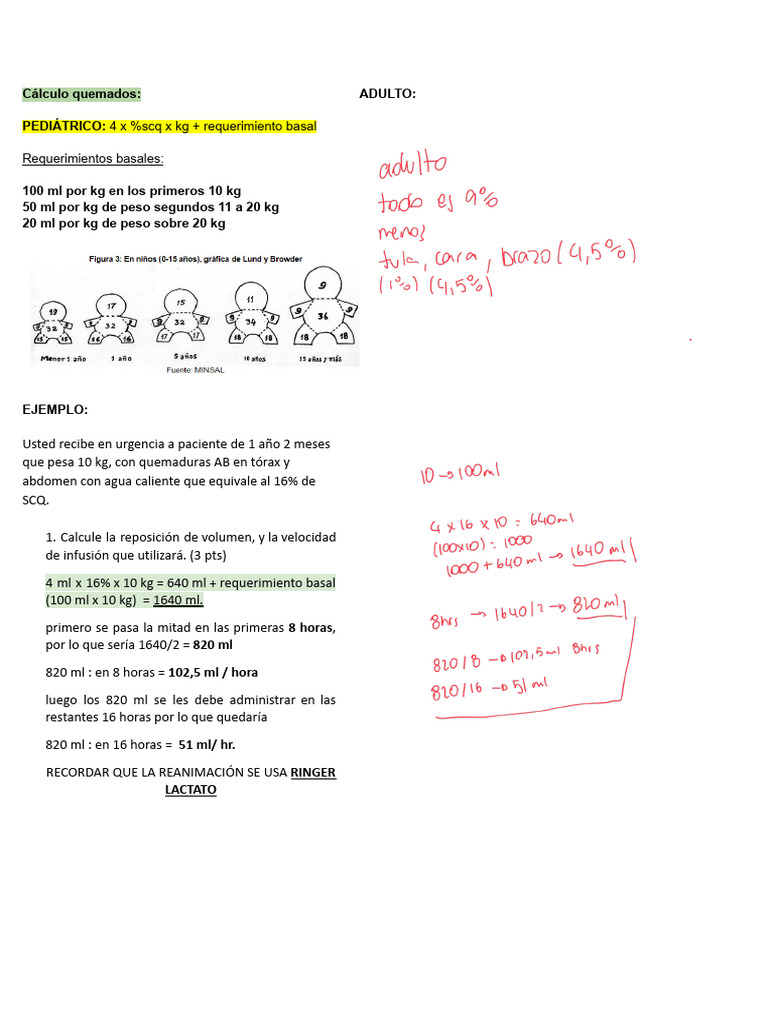 Cálculo quemados:
PEDIÁTRICO: 4 x %scq x kg + requerimiento basal
Requerimientos basales:
100 ml por kg en los primeros 10 kg
50 ml por kg de peso segundos 11 a 20 kg
20 ml por kg de peso sobre 20 kg
Figura 3: En niños (0-15 años), gráfica de Lund y Browder
19 17 15 11 9
9 32 9 9 32 9 9 32 9 9 34 9 9 36 9
15 15 16 16 17 17 18 18 18 18
Menor 1 año 1 año 5 años 10 años 15 años y más
Fuente: MINSAL
EJEMPLO:
Usted recibe en urgencia a paciente de 1 año 2 meses
que pesa 10 kg, con quemaduras AB en tórax y
abdomen con agua caliente que equivale al 16% de
SCQ.
1. Calcule la reposición de volumen, y la velocidad
de infusión que utilizará. (3 pts)
4 ml x 16% x 10 kg = 640 ml + requerimiento basal
(100 ml x 10 kg) = 1640 ml.
primero se pasa la mitad en las primeras 8 horas,
por lo que sería 1640/2 = 820 ml
820 ml : en 8 horas = 102,5 ml / hora
luego los 820 ml se les debe administrar en las
restantes 16 horas por lo que quedaría
820 ml : en 16 horas = 51 ml/ hr.
RECORDAR QUE LA REANIMACIÓN SE USA RINGER
LACTATO
ADULTO:
adulto
todo es 9%
menos
tula, cara, brazo (4,5%)
(1%) (4,5%)
10 → 100ml
4 x 16 x 10 = 640ml
(100x10) = 1000
1000 + 640 ml → 1640 ml
8hrs → 1640/2 → 820 ml
820/8 → 102,5 ml 8hrs
820/16 → 51 ml